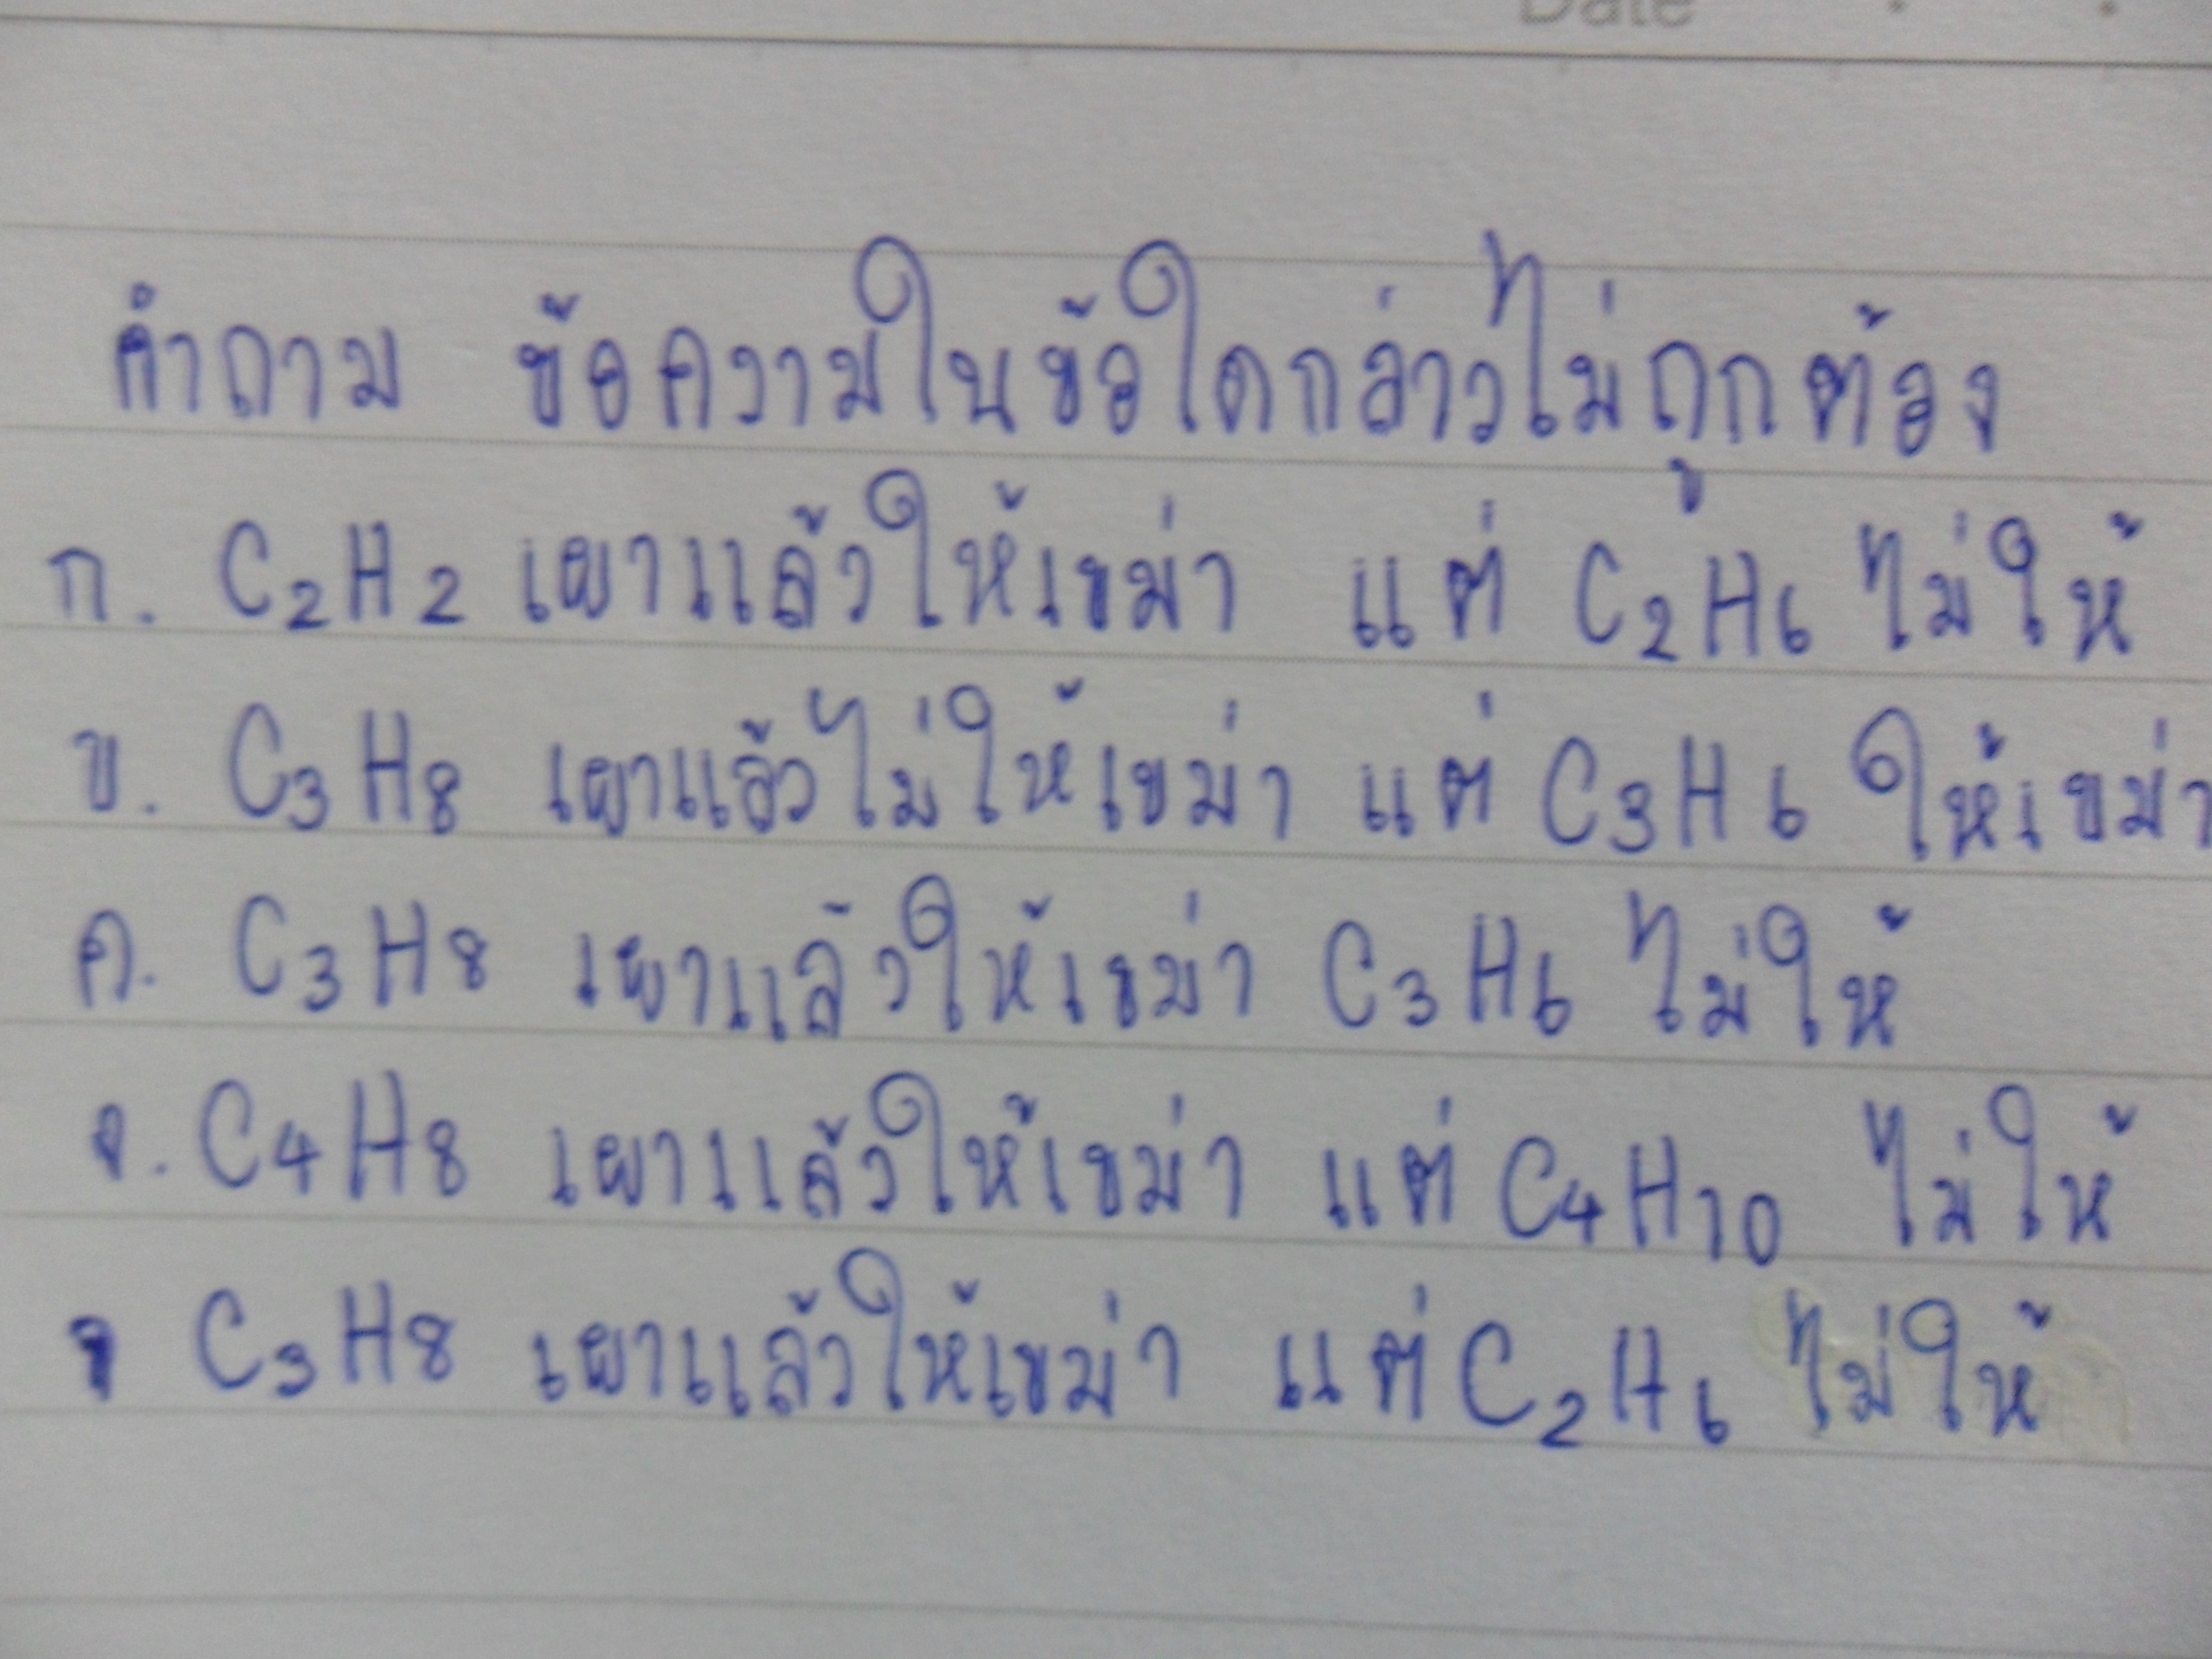 Date
คำถาม ข้อความในข้อใดกล่าวไม่ถูกต้อง
ก. C₂H₂ เผาแล้วให้เขม่า แต่ C₂H₆ ไม่ให้
ข. C₃H₈ เผาแล้วไม่ให้เขม่า แต่ C₃H₆ ให้เขม่า
ค. C₃H₈ เผาแล้วให้เขม่า C₃H₆ ไม่ให้
ง. C₄H₈ เผาแล้วให้เขม่า แต่ C₄H₁₀ ไม่ให้
C₃H₈ เผาแล้วให้เขม่า แต่ C₂H₆ ไม่ให้